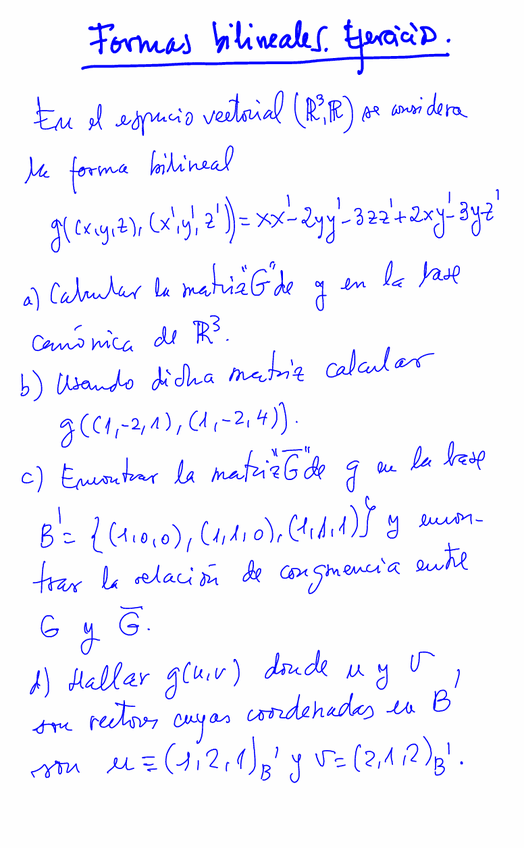 Formas bilineales. Ejercicio.
En el espacio vectorial (ℝ³,ℝ) se considera
la forma bilineal
g((x,y,z),(x',y',z'))=xx'-2yy'-3zz'+2xy'-3yz'
a) Calcular la matriz "G" de g en la base
canónica de ℝ³.
b) Usando dicha matriz calcular
g((1,-2,1),(1,-2,4)).
c) Encontrar la matriz "G̅" de g en la base
B'={(1,0,0),(1,1,0),(1,1,1)} y encon-
trar la relación de congruencia entre
G y G̅.
d) Hallar g(u,v) donde u y v
son vectores cuyas coordenadas en B'
son u≡(1,2,1)B' y v=(2,1,2)B'.